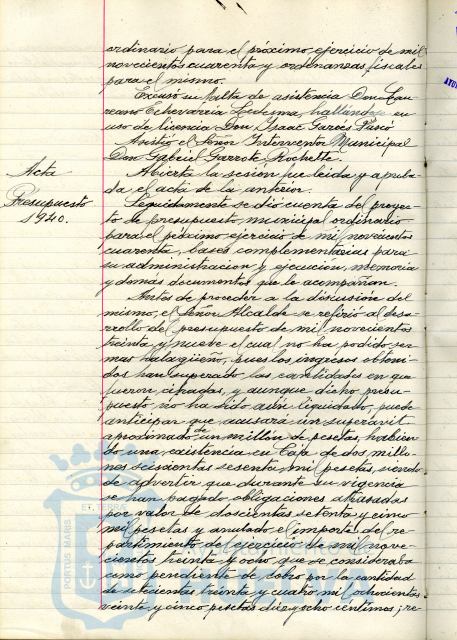 ordinario para el próximo ejercicio de mil
novecientos cuarenta y ordenanzas fiscales
para el mismo.
Excusó su falta de asistencia Don Lau-
reano Echevarría Ledesma, hallándose en
uso de licencia Don Isaac Garcés
Asistió el Señor Interventor Municipal
Don Gabriel Garrote Rochette.
Acta
Abierta la sesión fue leída y aproba-
da el acta de la anterior.
Presupuesto
1940.
Seguidamente se dio cuenta del proyec-
to de presupuesto municipal ordinario
para el próximo ejercicio de mil novecientos
cuarenta, bases complementarias para
su administración y ejecución, memoria
y demas documentos que le acompañan.
Antes de proceder a la discusión del
mismo, el Señor Alcalde se refirió al desa-
rrollo del presupuesto de mil novecientos
treinta y nueve el cual no ha podido ser
mas halagüeño, pues los ingresos obteni-
dos han superado las cantidades en que
fueron cifradas, y aunque dicho presu-
puesto no ha sido aún liquidado, puede
anticipar que acusará un superavit
aproximado de un millón de pesetas, habien-
do una existencia en Caja de dos millo-
nes seiscientas sesenta mil pesetas, siendo
de advertir que durante su vigencia
se han pagado obligaciones atrasadas
por valor de doscientas setenta y cinco
mil pesetas y anulado el importe del re-
partimiento del ejercicio de mil nove-
cientos treinta y ocho que se consideraba
como pendiente de cobro por la cantidad
de setecientas treinta y cuatro mil ochocientas
veinte y cinco pesetas diez y ocho céntimos; re-
PORTUS MARIS